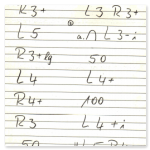 K3+ L3 R3+
L5 a∩L3-i
R3+lg 50
L4 L4+
R4+ 100
R3 L4+i
50